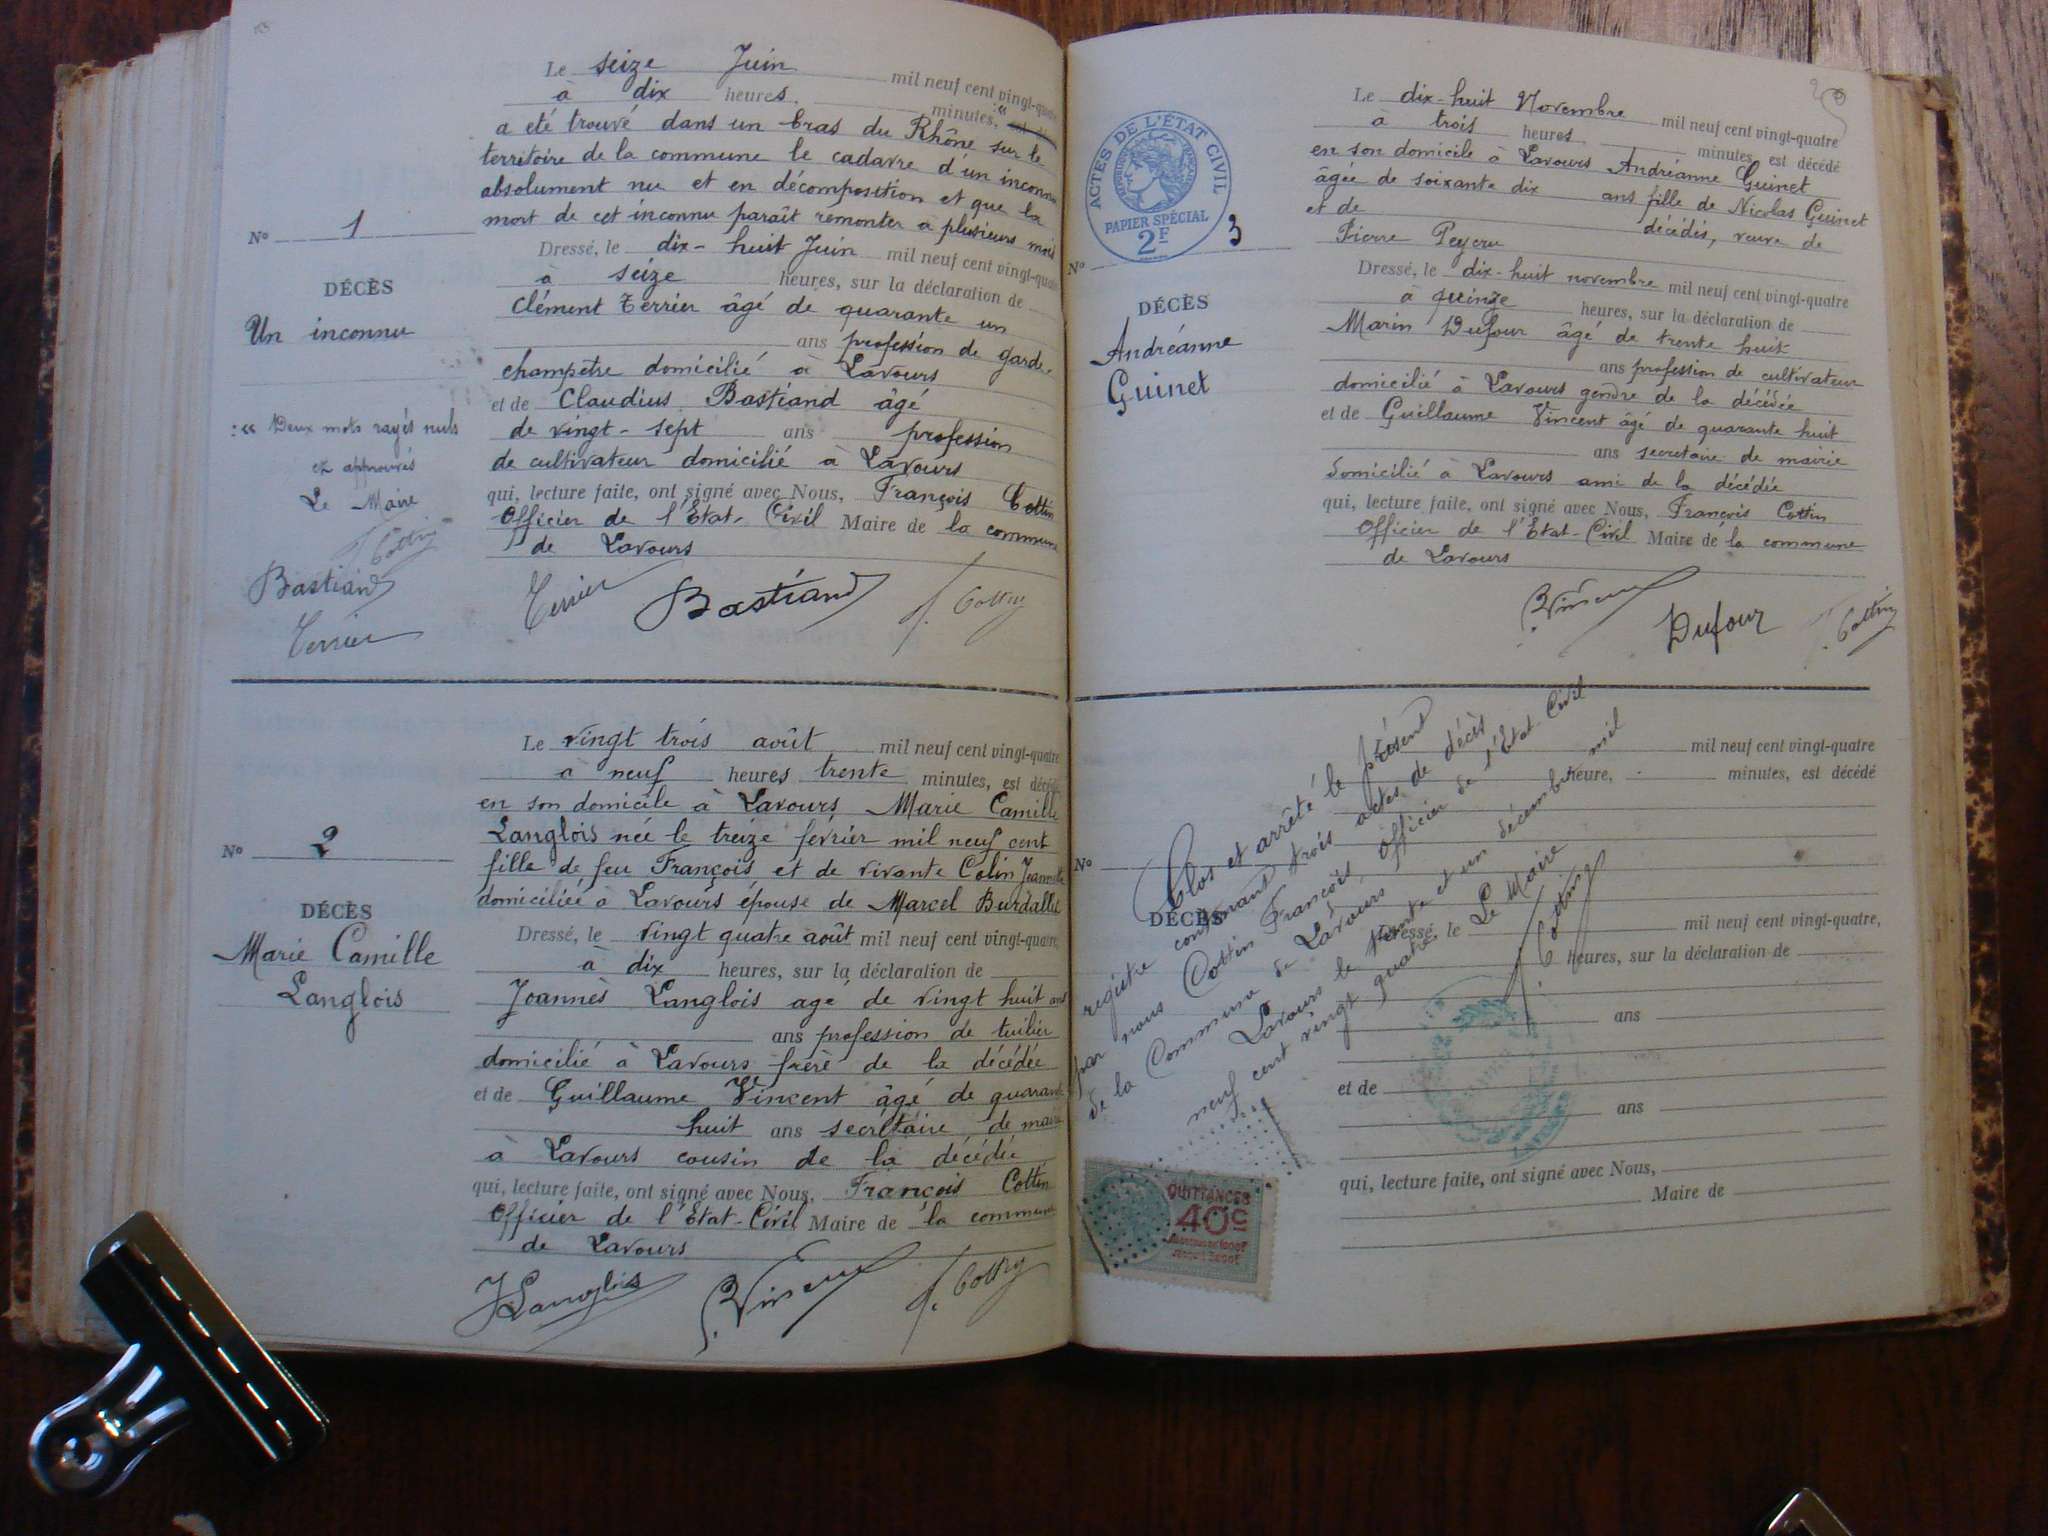 Le seize Juin mil neuf cent vingt-quatre
à dix heures minutes, :«
a eté trouvé dans un bras du Rhône sur le
territoire de la commune le cadavre d'un inconnu
absolument nu et en décomposition et que la
mort de cet inconnu paraît remonter à plusieurs mois
Nº 1
Dressé, le dix-huit Juin mil neuf cent vingt-quatre
à seize heures, sur la déclaration de
DÉCÈS
Un inconnu
Clément Terrier âgé de quarante un
ans profession de garde-
champêtre domicilié à Lavours
et de Claudius Bastiand âgé
de vingt-sept ans profession
de cultivateur domicilié à Lavours
qui, lecture faite, ont signé avec Nous, François Cottin
Officier de l'Etat-Civil Maire de la commune
de Lavours
:« Deux mots rayés nuls
et approuvés
Le Maire
F. Cottin
Bastiand
Terrier
Terrier Bastiand F. Cottin
Le vingt trois août mil neuf cent vingt-quatre
à neuf heures trente minutes, est décédé
en son domicile à Lavours, Marie Camille
Langlois née le treize fevrier mil neuf cent
fille de feu François et de vivante Colin Jeannette
domiciliée à Lavours épouse de Marcel Burdallet
Nº 2
DÉCÈS
Marie Camille
Langlois
Dressé, le vingt quatre août mil neuf cent vingt-quatre,
à dix heures, sur la déclaration de
Joannès Langlois agé de vingt huit ans
ans profession de tuilier
domicilié à Lavours frère de la décédée
et de Guillaume Vincent âgé de quarante
huit ans secrétaire de mairie
à Lavours cousin de la décédée
qui, lecture faite, ont signé avec Nous, François Cottin
Officier de l'Etat-Civil Maire de la commune
de Lavours
J Langlois G. Vincent F. Cottin
ACTES DE L'ÉTAT CIVIL
PAPIER SPÉCIAL
2F
Le dix-huit Novembre mil neuf cent vingt-quatre
à trois heures minutes, est décédé
en son domicile à Lavours Andréanne Guinet
âgée de soixante dix ans fille de Nicolas Guinet
et de décédés, veuve de
Pierre Peycru
Nº 3
DÉCÈS
Andréanne
Guinet
Dressé, le dix-huit novembre mil neuf cent vingt-quatre
à quinze heures, sur la déclaration de
Marin Dufour âgé de trente huit
ans profession de cultivateur
domicilié à Lavours gendre de la décédée
et de Guillaume Vincent âgé de quarante huit
ans secretaire de mairie
domicilié à Lavours ami de la décédée
qui, lecture faite, ont signé avec Nous, François Cottin
Officier de l'Etat-Civil Maire de la commune
de Lavours
G. Vincent Dufour F. Cottin
mil neuf cent vingt-quatre
heure, minutes, est décédé
Nº
DÉCÈS
Dressé, le mil neuf cent vingt-quatre,
heures, sur la déclaration de
ans
et de
ans
qui, lecture faite, ont signé avec Nous,
Maire de
Clos et arrêté le présent
registre contenant trois actes de décès
par nous Cottin François, Officier de l'Etat Civil
de la Commune de Lavours
Lavours le trente et un décembre mil
neuf cent vingt quatre Le Maire
F. Cottin
QUITTANCES
40c